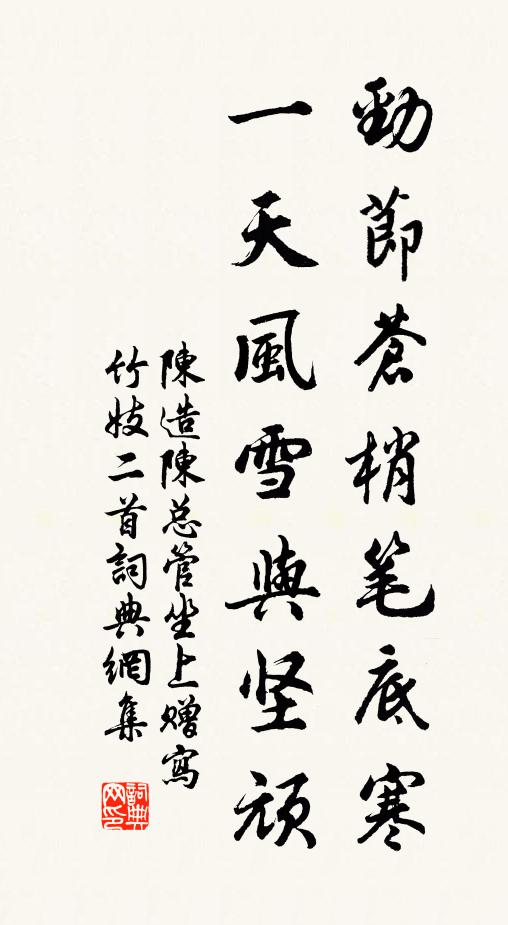 勁節蒼梢笔底寒
一天風雪與坚頑
陳造陳总管坐上贈寫
竹妓二首詞典網集
詞典网印